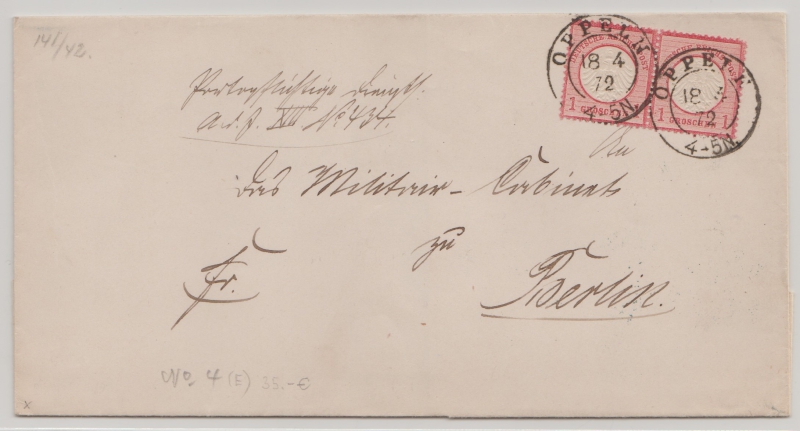 141/42.
OPPELN
18 4
72
4-5N.
DEUTSCHE REICHS-POST
1 GROSCHEN 1
OPPELN
18 4
72
4-5N.
1 GROSCHEN 1
Portopflichtige Dienstf.
A. d. J. XVII No 434.
An
das Militair-Cabinet
zu
Fr. Berlin.
No 4 (E) 35.-€
x